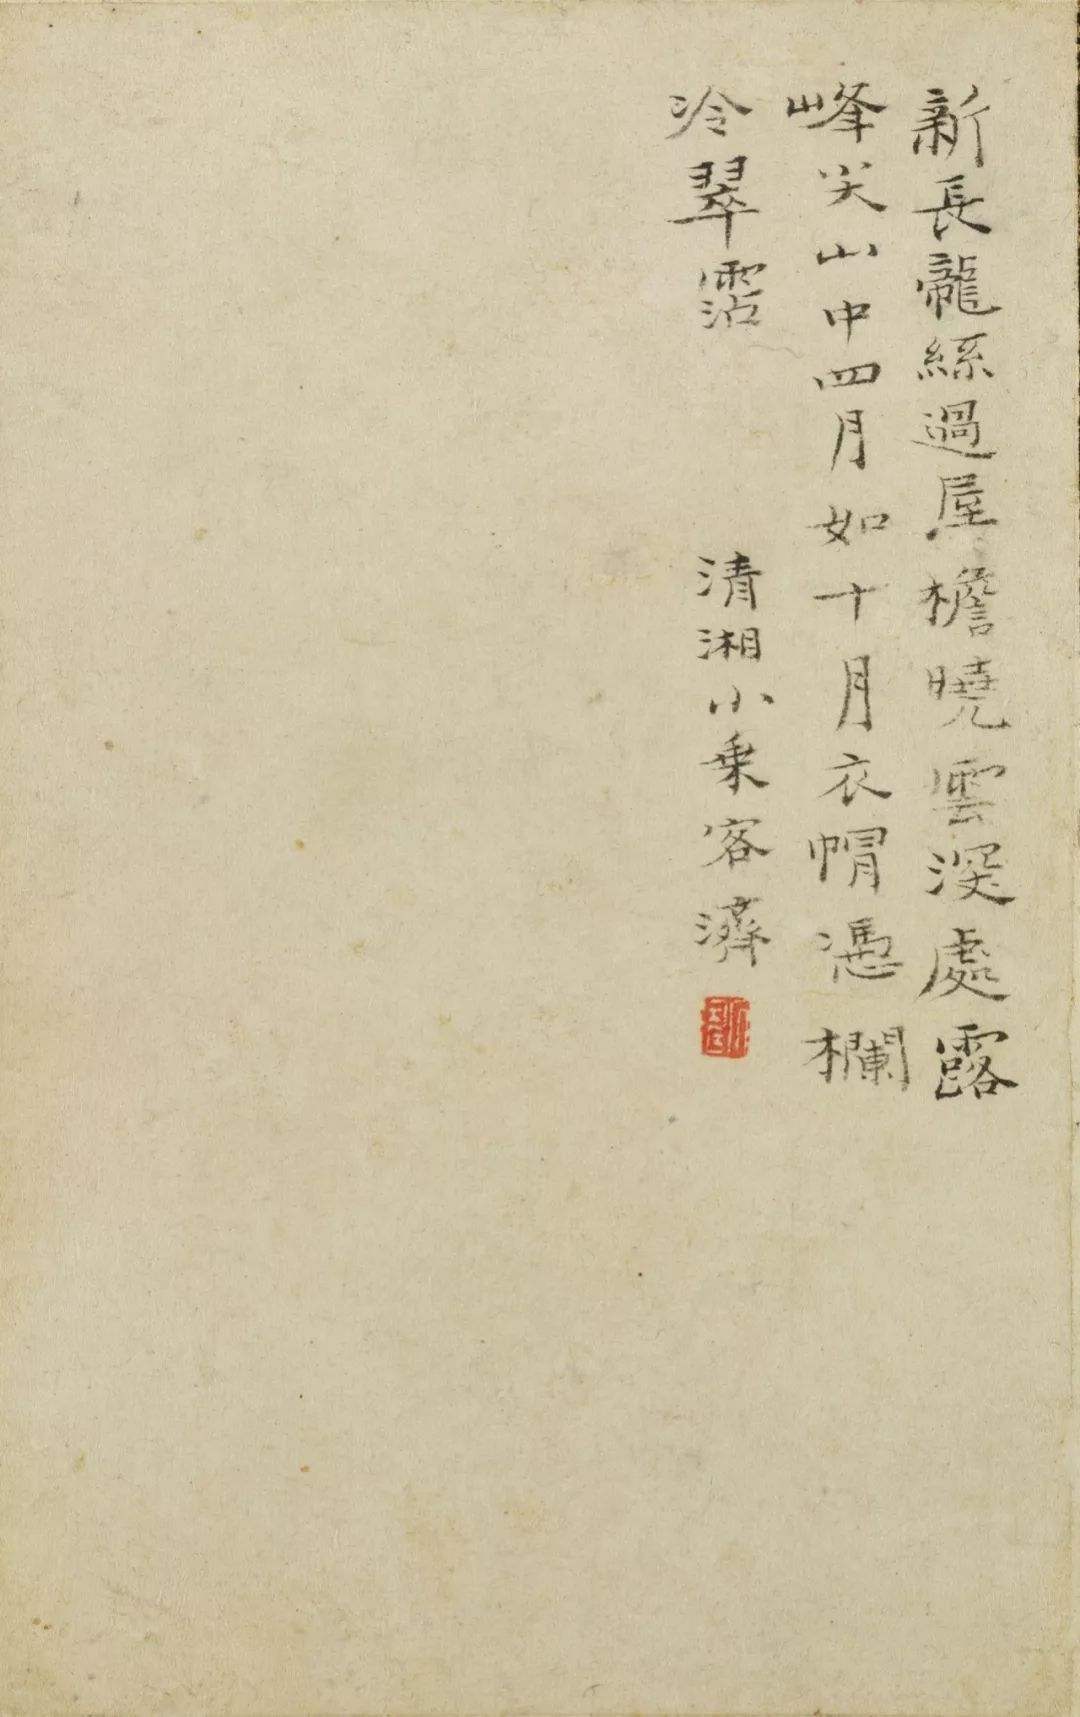 新長龍絲過屋檐曉雲深處露
峰尖山中四月如十月衣帽憑欄
冷翠霑
清湘小乗客濟